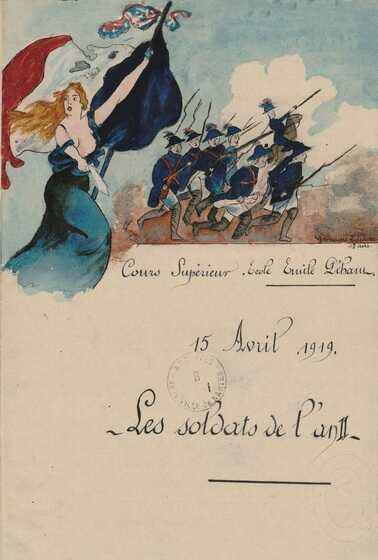 13 ans
Cours Supérieur. Ecole Emile Déhan.
15 Avril 1919.
Les soldats de l'an II